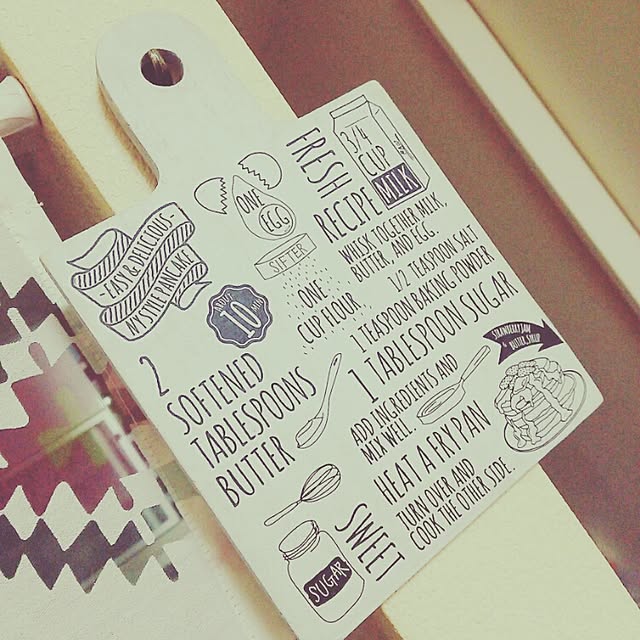 -EASY & DELICIOUS-
NY STYLE PANCAKE
ONE
EGG
SIFTER
ONE
CUP FLOUR
10
2
SOFTENED
TABLESPOONS
BUTTER
SWEET
SUGAR
FRESH
RECIPE
3/4
CUP
MILK
WHISK TOGETHER MILK,
BUTTER, AND EGG.
1/2 TEASPOON SALT
1 TEASPOON BAKING POWDER
1 TABLESPOON SUGAR
ADD INGREDIENTS AND
MIX WELL.
HEAT A FRY PAN
TURN OVER AND
COOK THE OTHER SIDE.
STRAWBERRY JAM
& BUTTER, SYRUP